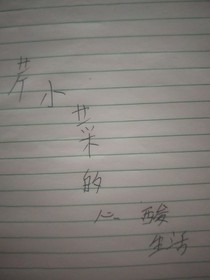 芹小菜的
心酸
生活